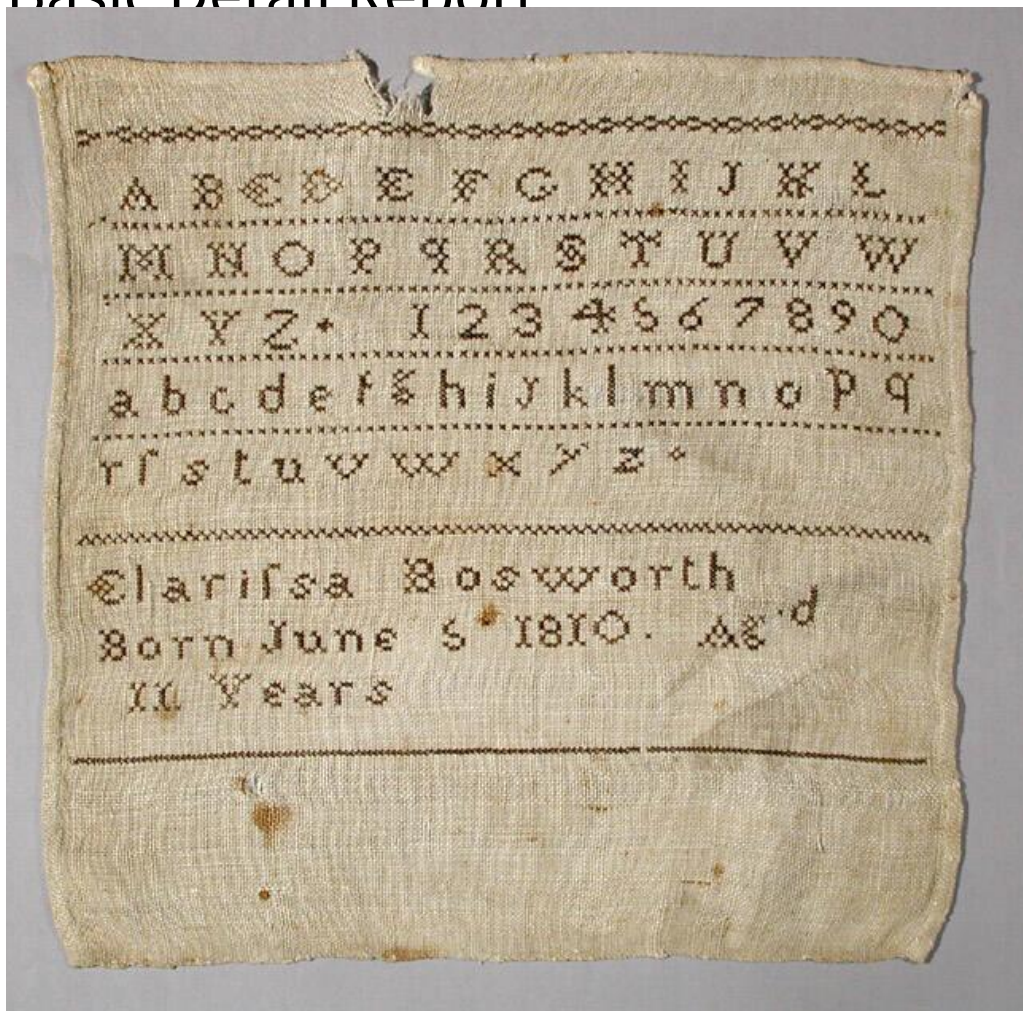 Basic Detail Report
A B C D E F G H I J K L
M N O P q R S T U V W
X Y Z 1 2 3 4 5 6 7 8 9 0
a b c d e f g h i j k l m n o p q
r ſ s t u v w x y z
Clariſsa Bosworth
Born June 5 1810. Ag'd
11 Years